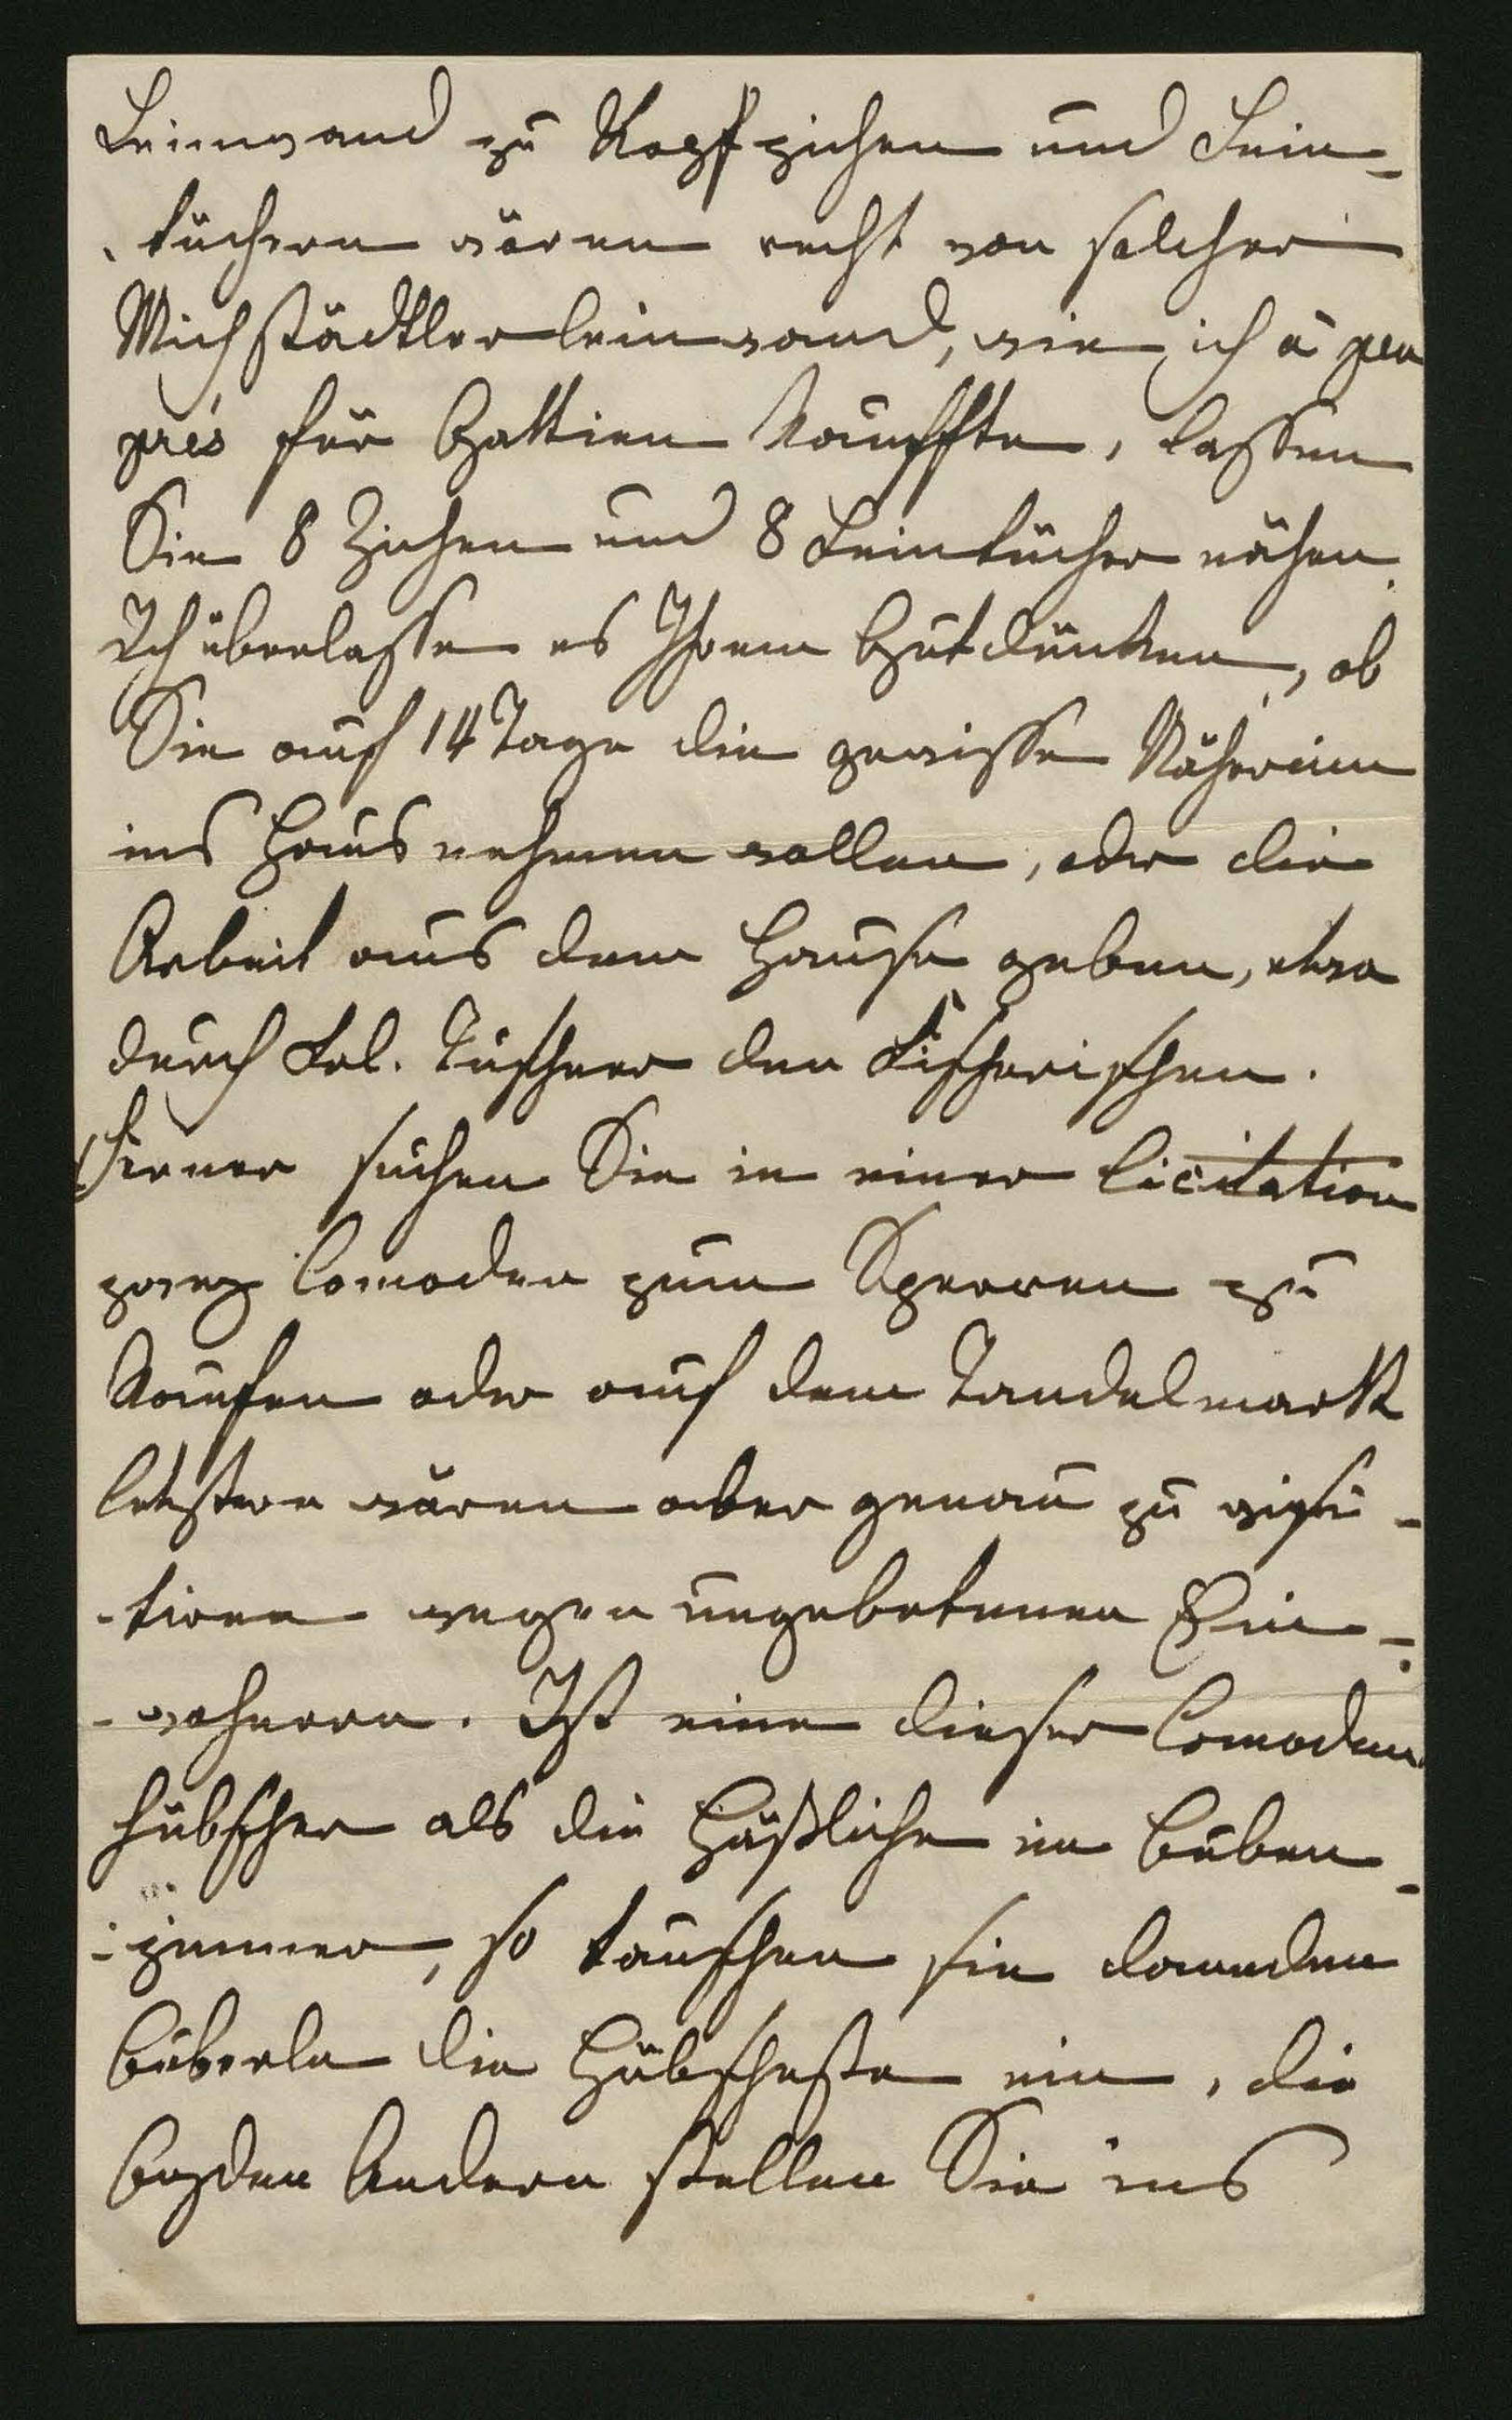 Leinwand zu Kopfziehen und Lein-
-tüchern wären recht von solcher
Michstädtlerleinwand, wie ich à peu
près für Gattien kauffte, lassen
Sie 8 Ziehen und 8 Leintücher nähen.
Ich überlasse es Ihrem Gutdünken, ob
Sie auf 14 Tage die gewisse Näherinn
ins Haus nehmen wollen, oder die
Arbeit aus dem Hause geben, etwa
durch den Fischerischen.
Ferner suchen Sie in einer Licitation
zwey Comoden zum Sperren zu
kaufen oder auf dem Tandelmarkt
letztere wären aber genau zu visi-
-tiren wegen ungebetenen Ein-
-wohnern. Ist eine dieser Comoden
hübscher als die Häßliche im Buben-
-zimmer, so tauschen sie daneden
Büberln die Hübscheste ein, die
beyden Andern stellen Sie ins